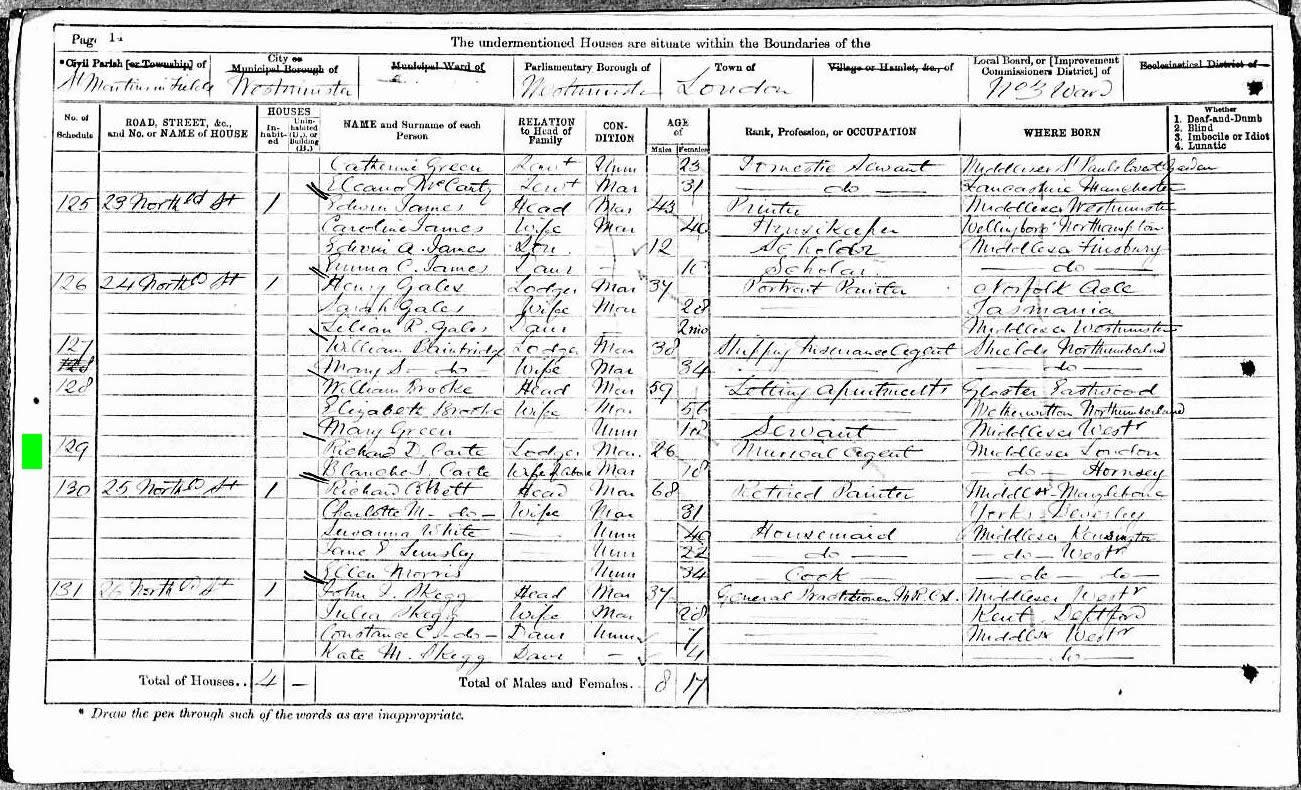 Page 14
The undermentioned Houses are situate within the Boundaries of the
*Civil Parish [or Township] of
City or Municipal Borough of
Municipal Ward of
Parliamentary Borough of
Town of
Village or Hamlet, &c., of
Local Board, or [Improvement Commissioners District] of
Ecclesiastical District of
St Martins in Fields Westminster Westminster London No 3 Ward
No. of Schedule
ROAD, STREET, &c., and No. or NAME of HOUSE
HOUSES
In-habited
Unin-habited (U.), or Building (B.)
NAME and Surname of each Person
RELATION to Head of Family
CON-DITION
AGE of
Males Females
Rank, Profession, or OCCUPATION
WHERE BORN
Whether
1. Deaf-and-Dumb
2. Blind
3. Imbecile or Idiot
4. Lunatic
Catherine Green Serv+ Unm 23 Domestic Servant Middlesex St Pauls Covent Garden
Eleanor McCarty Serv+ Mar 31 do Lancashire Manchester
125 23 North St 1 Edwin James Head Mar 43 Printer Middlesex Westminster
Caroline James Wife Mar 40 Housekeeper Northampton
Edwin A. James Son 12 Scholar Middlesex Finsbury
Emma C. James Daur 10 Scholar do
126 24 North St 1 Henry Gales Lodger Mar 37 Portrait Painter Norfolk Acle
Sarah Gales Wife Mar 28 Tasmania
Lilian R. Gales Daur 2mo Middlesex Westminster
127 William Bainbridge Lodger Mar 38 Shipping Insurance Agent Shields Northumberland
Mary S. do Wife Mar 34 do
128 William Brooke Head Mar 59 Letting apartments Gloster Eastwood
Elizabeth Brooke Wife Mar 56 Northumberland
Mary Green Unm 18 Servant Middlesex Westr
129 Richard D. Carte Lodger Mar. 26 Musical Agent Middlesex London
Blanche J. Carte Wife of above Mar 18 do Hornsey
130 25 North St 1 Richard Head Mar 68 Retired Painter Middlsx Marylebone
Charlotte M - do - Wife Mar 31 Yorks Beverley
Susanna White Unm 40 Housemaid Middlesex Kensington
Jane E Unm 22 do do Westr
Ellen Morris Unm 34 Cook do do
131 26 North St 1 John Skegg Head Mar 37 General Practitioner M.R.C.S. Middlesex Westr
Julia Skegg Wife Mar 28 Kent Deptford
Constance C - do - Daur Unm 7 Middlsx Westr
Kate M. Skegg Daur 4 do
Total of Houses.. 4 – Total of Males and Females.. 8 17
* Draw the pen through such of the words as are inappropriate.